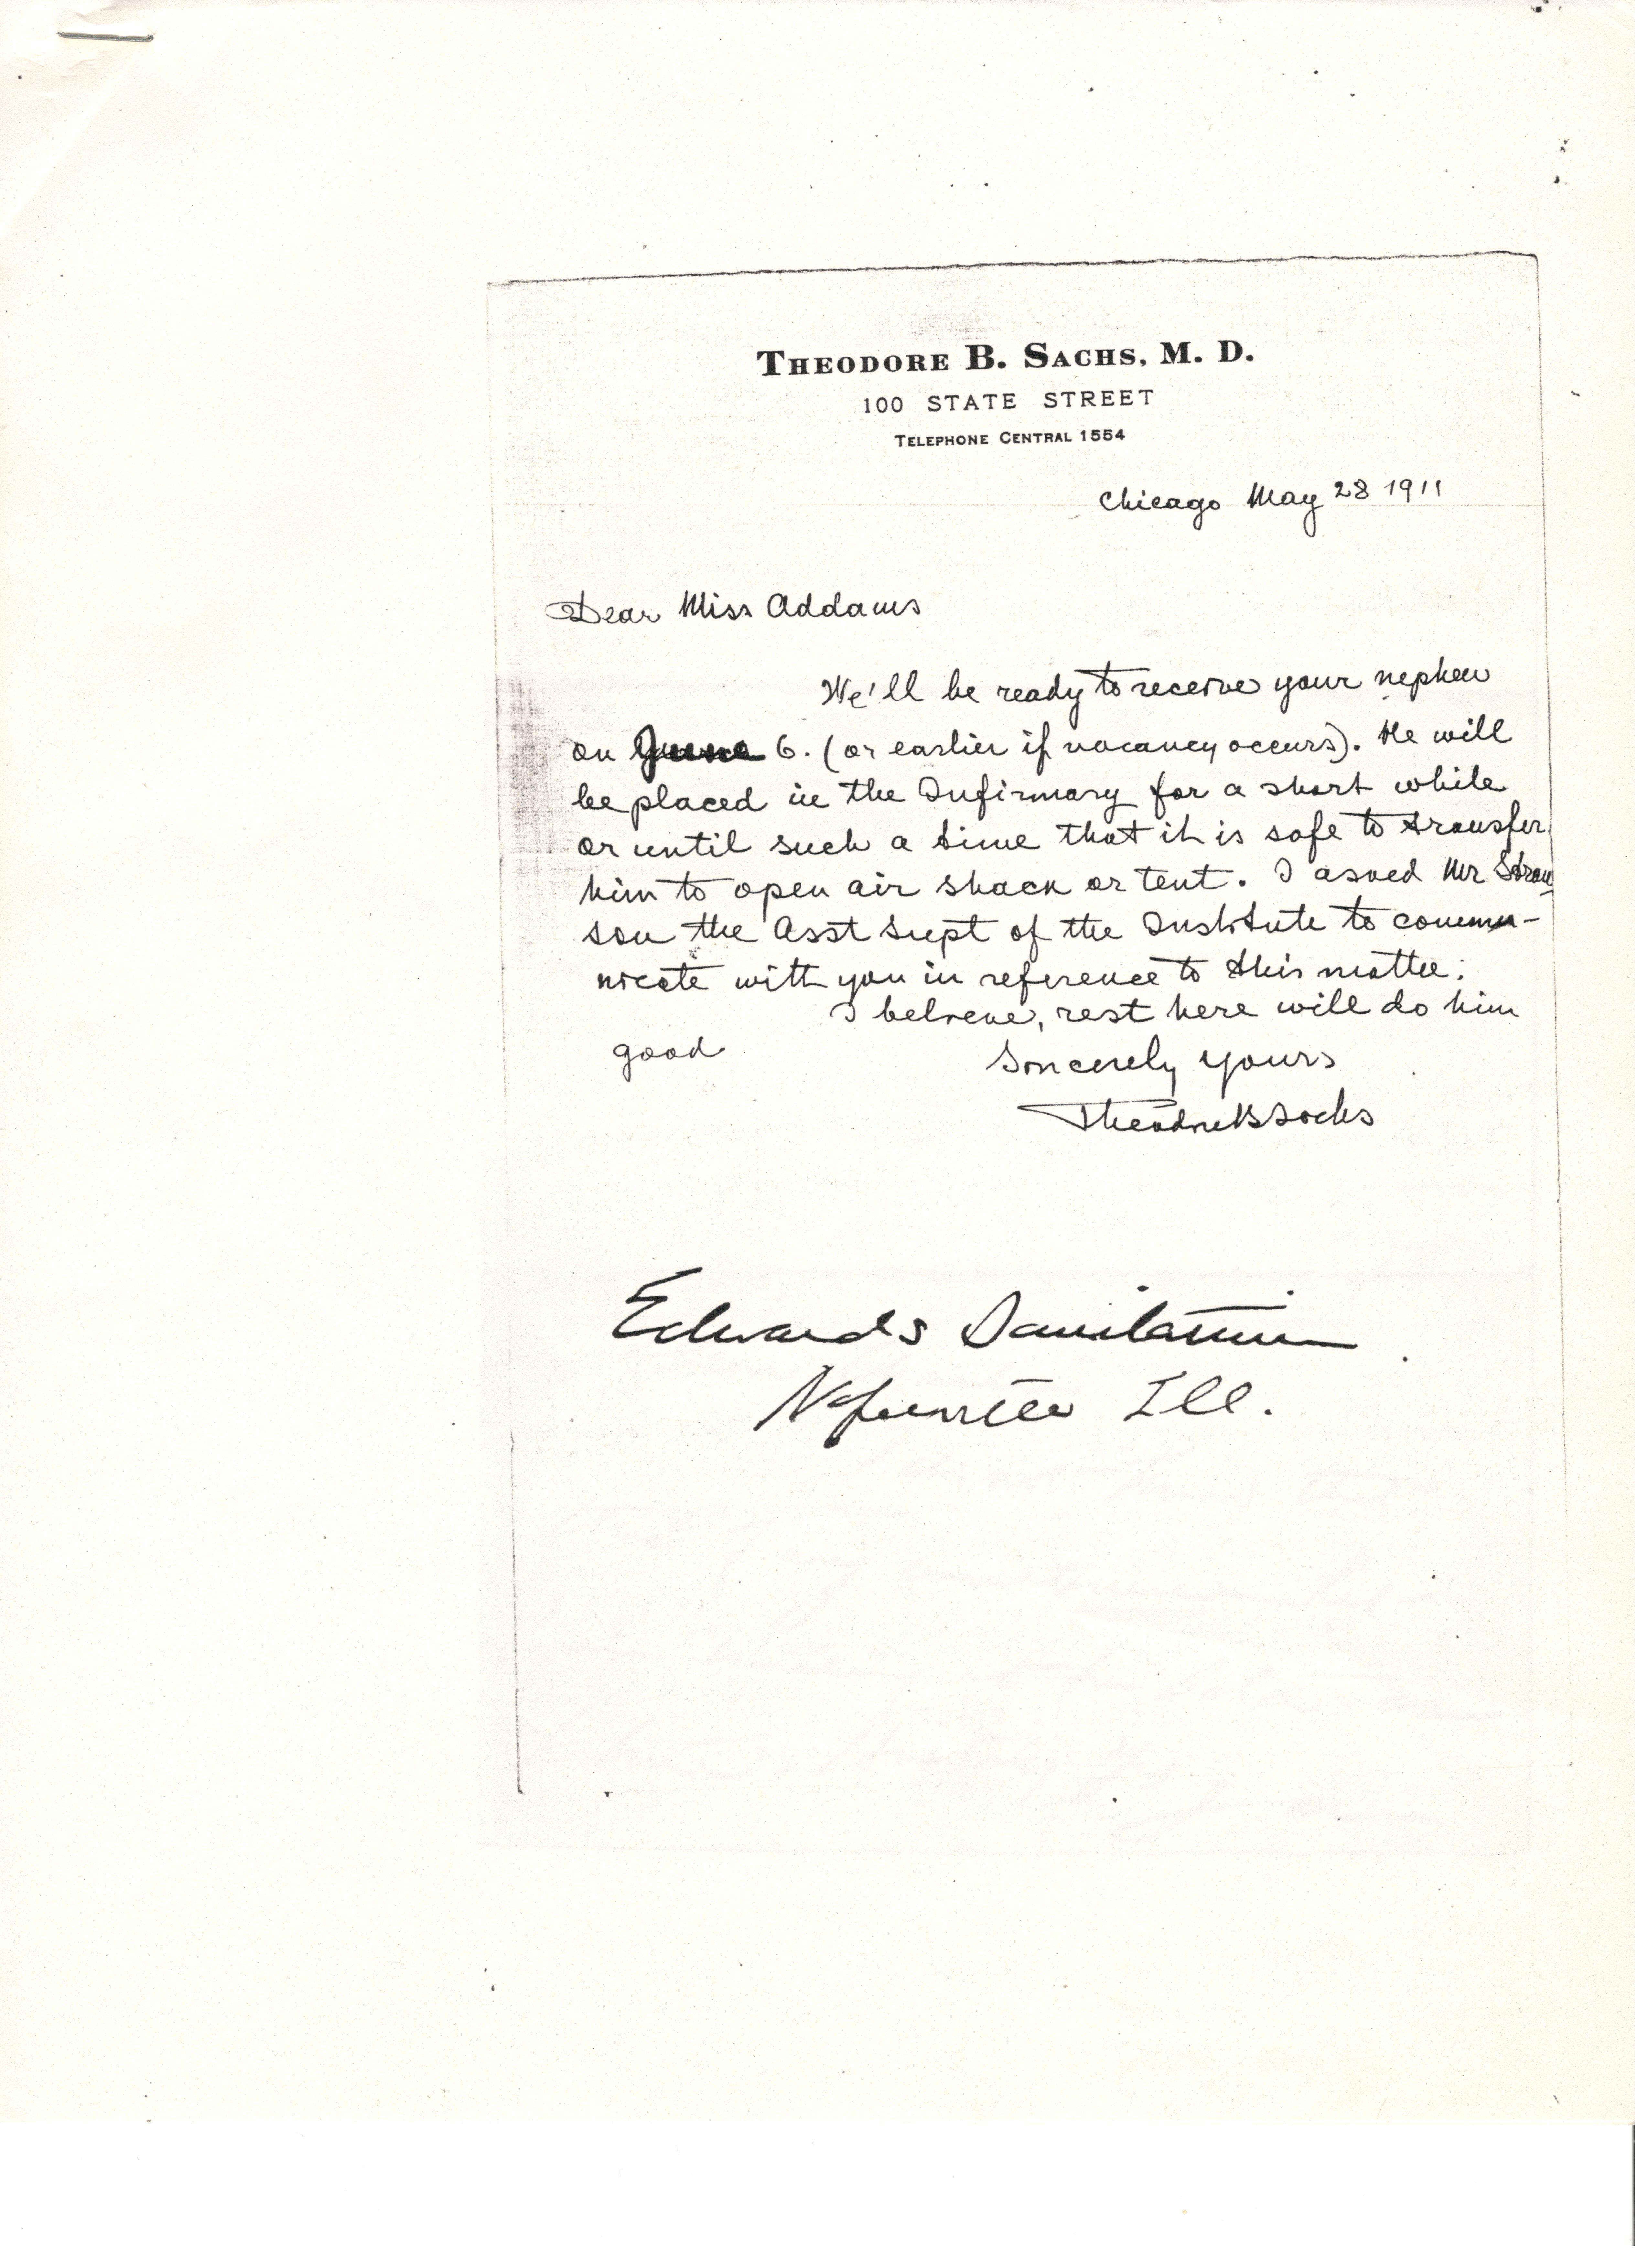 THEODORE B. SACHS, M. D.
100 STATE STREET
TELEPHONE CENTRAL 1554
Chicago May 28 1911
Dear Miss Addams
We'll be ready to receive your nephew
on June 6. (or earlier if vacancy occurs). He will
be placed in the Infirmary for a short while
or until such a time that it is safe to transfer
him to open air shack or tent. I asked Mr Straw
son the Asst Supt of the Institute to commu-
nicate with you in reference to this matter.
I believe, rest here will do him
good
Sincerely yours
Theodore B Sachs
Edwards Sanitarium
Naperville Ill.